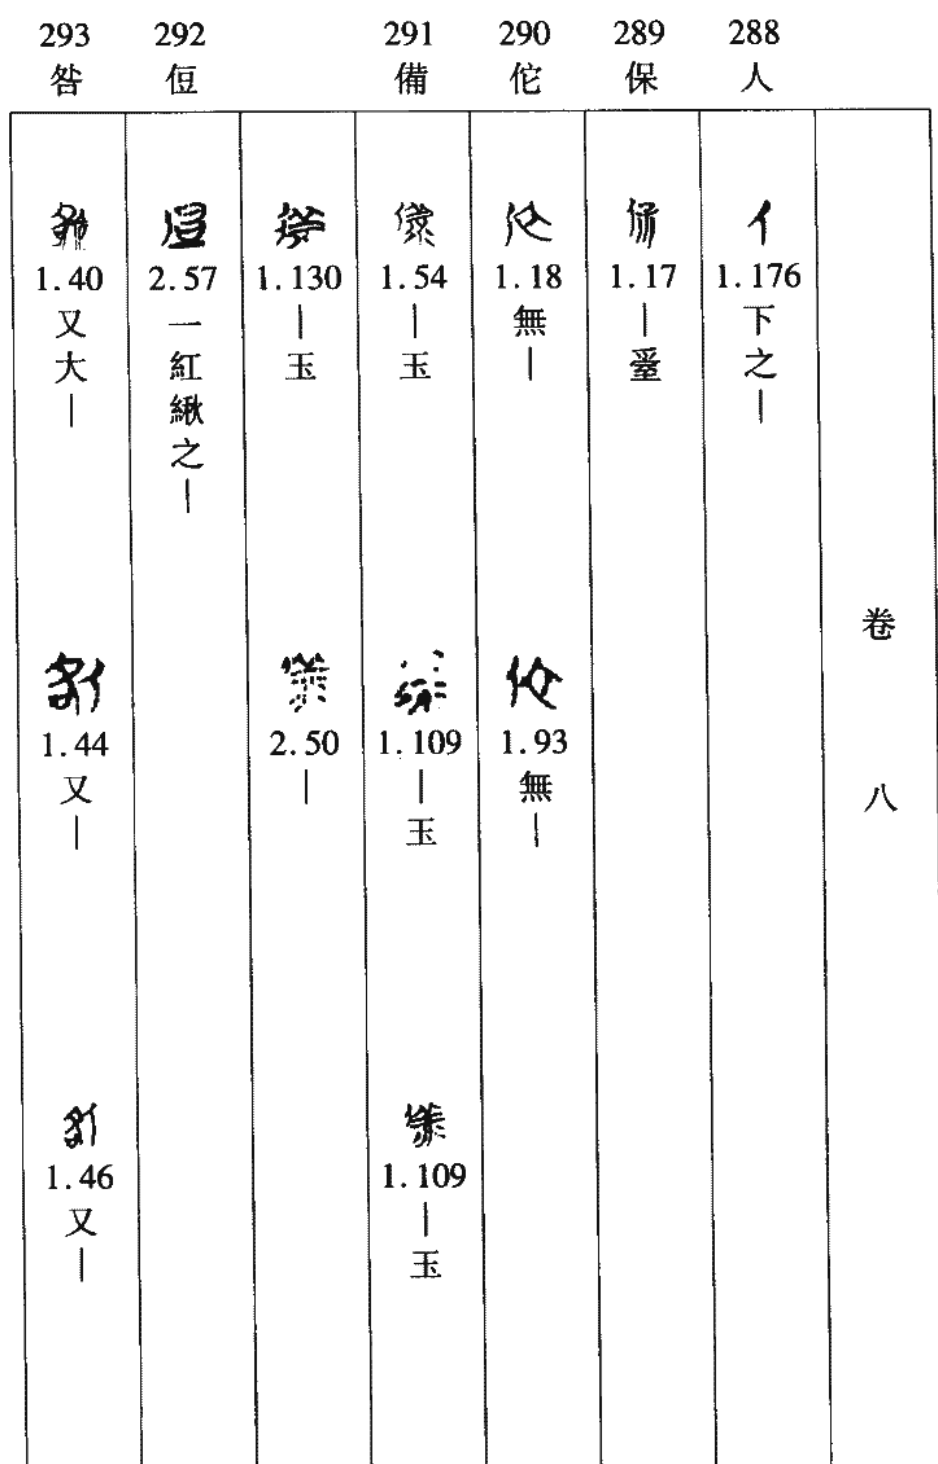 卷八
288
人
1.176
下之｜
289
保
1.17
｜
290
佗
1.18
無｜
1.93
無｜
291
備
1.54
｜玉
1.109
｜玉
1.109
｜玉
1.130
｜玉
2.50
｜
292
侸
2.57
一紅緅之｜
293
咎
1.40
又大｜
1.44
又｜
1.46
又｜